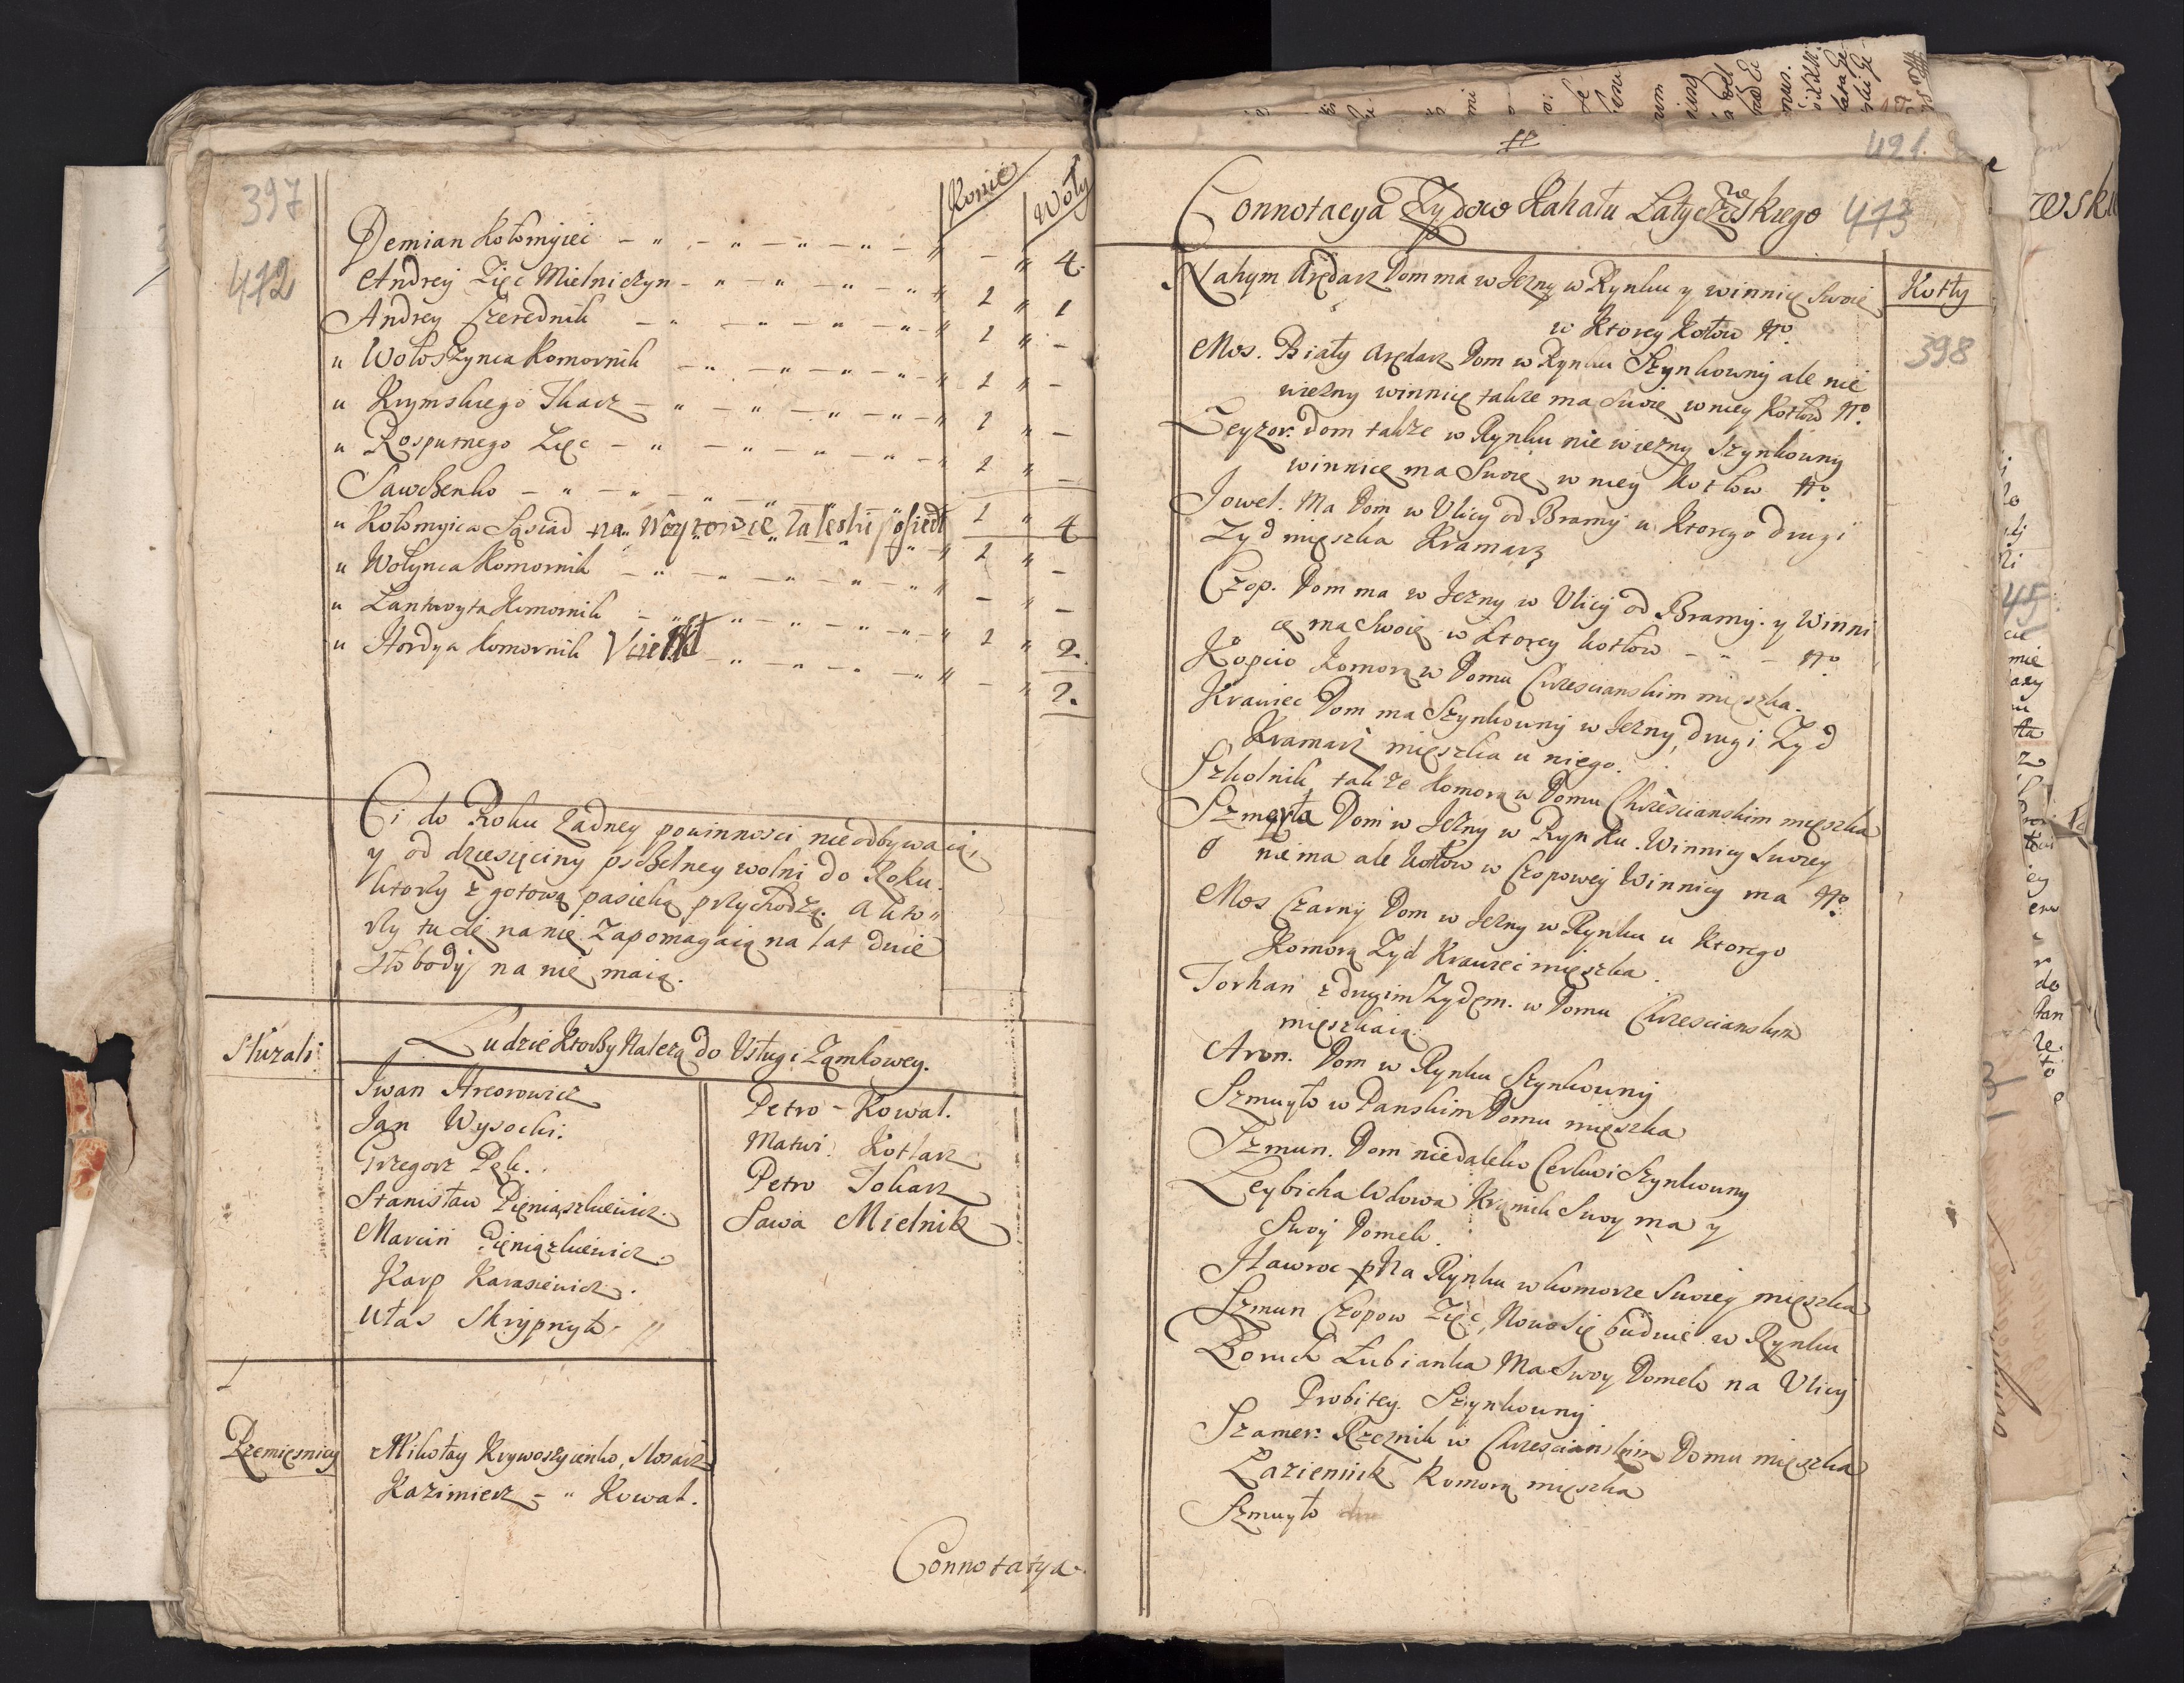 397
472
Konie
Woły
Demian Kołomyiec - " - " - " - " - " - " 4.
Andrey Zięc Mielniczyn - " - " - " - " 2 " 1
Andrey Czerednik - " - " - " - " 2 " -
u Wołoszynca Komornik - " - " - " - " 2 " -
u Krymskiego Tkacz - " - " - " - " 2 " -
u Rosputnego Zięc - " - " - " - " 2 " -
Sawczenko - " - " - " - " 2 " 4
u Kołomyica Sąsiad na Woytowie Zaleski osiedł 2 " -
u Wołynca Komornik - " - " - " - " - " -
u Lantwoyta Komornik - " - " - " - " 2 " 2.
u Hordya Komornik Uciekł - " - " - " - " 2.
Ci do Roku żadney powinnosci nie odbywaią,
y od dziesięciny pszczelney wolni do Roku.
ktory z gotową pasieką przychodzą. a kto"
rzy tu się na nie zapomagaią na lat dwie
słobody na nie maią.
Służali
Ludzie Ktorzy Należą do Usługi Zamkowey.
Iwan Hreorowicz
Jan Wysocki.
Grzegorz Pęk.
Stanisław Pieniąszkiewicz.
Marcin Pieniązkiewicz.
Karp Karasiewicz.
Własz Skrypnyk
Petro - Kowal.
Matwi. Kotlarz
Petro Tokarz
Sawa Mielnik
Rzemięsnicy
Mikołay Krywoszyienko, Slosarz
Kazimierz - " Kowal.
Connotatya.
421.
Connotacya Żydow Kahału Latyczewskiego
473
Kotły
398
Nahym Arędarz Dom ma wIezny w Rynku y winnicę Swoię
w Ktorey Kotłow No.
Mos. Biały Arędarz Dom w Rynku Szynkowny ale nie
wiezny winnicę takze ma Swoię w niey Kotłow No.
Leyzor. Dom takze w Rynku nie wiezny Szynkowny
winnicę ma Swoię w niey Kotłow No.
Jowel. Ma Dom w Ulicy od Bramy u Ktorego drugi
Zyd mięszka Kramarz
Czop. Dom ma wIezny w Ulicy od Bramy. y Winni
cę ma Swoię w ktorey kotłow - - - No.
Kopcio Komorą w Domu Chrzescianskim mięszka.
Krawiec Dom ma Szynkowny wIezny, drugi Zyd
Kramarz mięszka u niego.
Szkolnik takze Komorą w Domu Chrzescianskim mięszka
Szmoyła Dom wIezny w Rynku. Winnicy Swoiey
nie ma ale Kotłow w Czopowey Winnicy ma No.
Mos Czarny Dom wIezny w Rynku u Ktorego
Komorą Zyd Krawiec mięszka.
Torhan z drugim Zydem. w Domu Chrzescianskim
mięszkaią.
Aron. Dom w Rynku Szynkowny
Szmuyło w Panskim Domu mięszka
Szmun. Dom niedaleko Cerkwi Szynkowny
Leybicha Wdowa Kramik Swoy ma y
Swoy Domek.
Hawroc Na Rynku w komorze Swoiey mięszka
Szmun Czopow Zięć, Nowo się buduie w Rynku
Boruch Łubianka Ma Swoy Domek na Ulicy
Probitey. Szynkowny
Szamer. Rzeznik w Chrzescianskim Domu mięszka
Łaziennik Komorą mięszka
Szmuyło